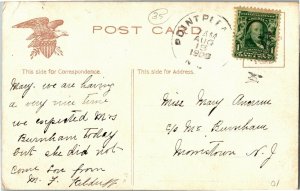 35
POST CARD
POINT PLEA
AM
AUG
13
1908
N.J.
This side for Correspondence.
This side for Address.
May. we are having
a very nice time
we expected Mrs
Burnham today
but she did not
come love from
M. F.
Miss May
c/o Ms. Burnham
Morristown N. J